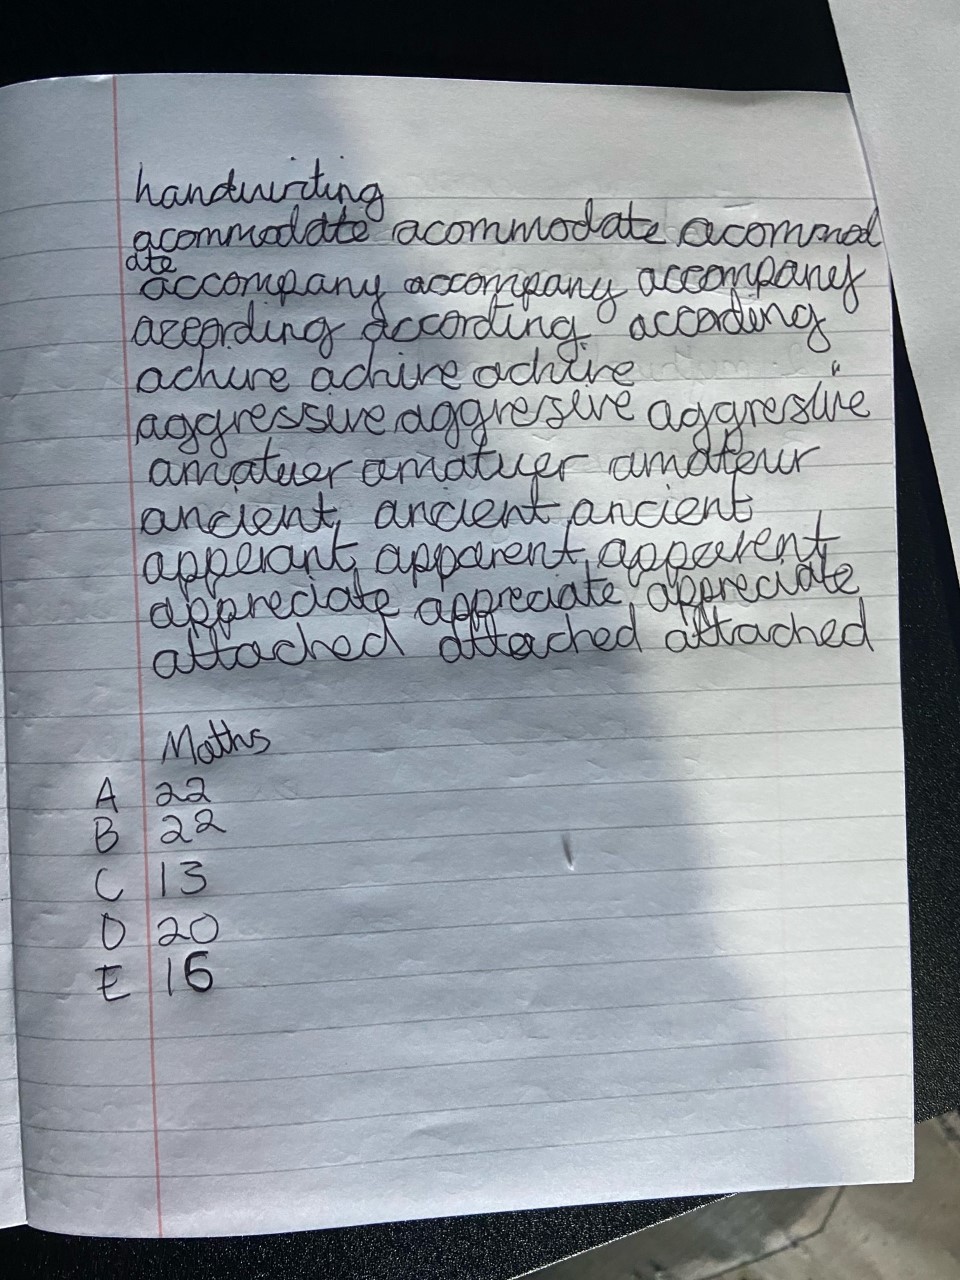 handwriting
acommodate acommodate acommod
ate
accompany accompany accompany
according according. according
achive achive achive
aggressive aggresive aggresive
amatuer amatuer amateur
ancient, ancient, ancient
apperant, apparent, apparent,
appreciate appreciate, appreciate
attached attached attached
Maths
A 22
B 22
C 13
D 20
E 16